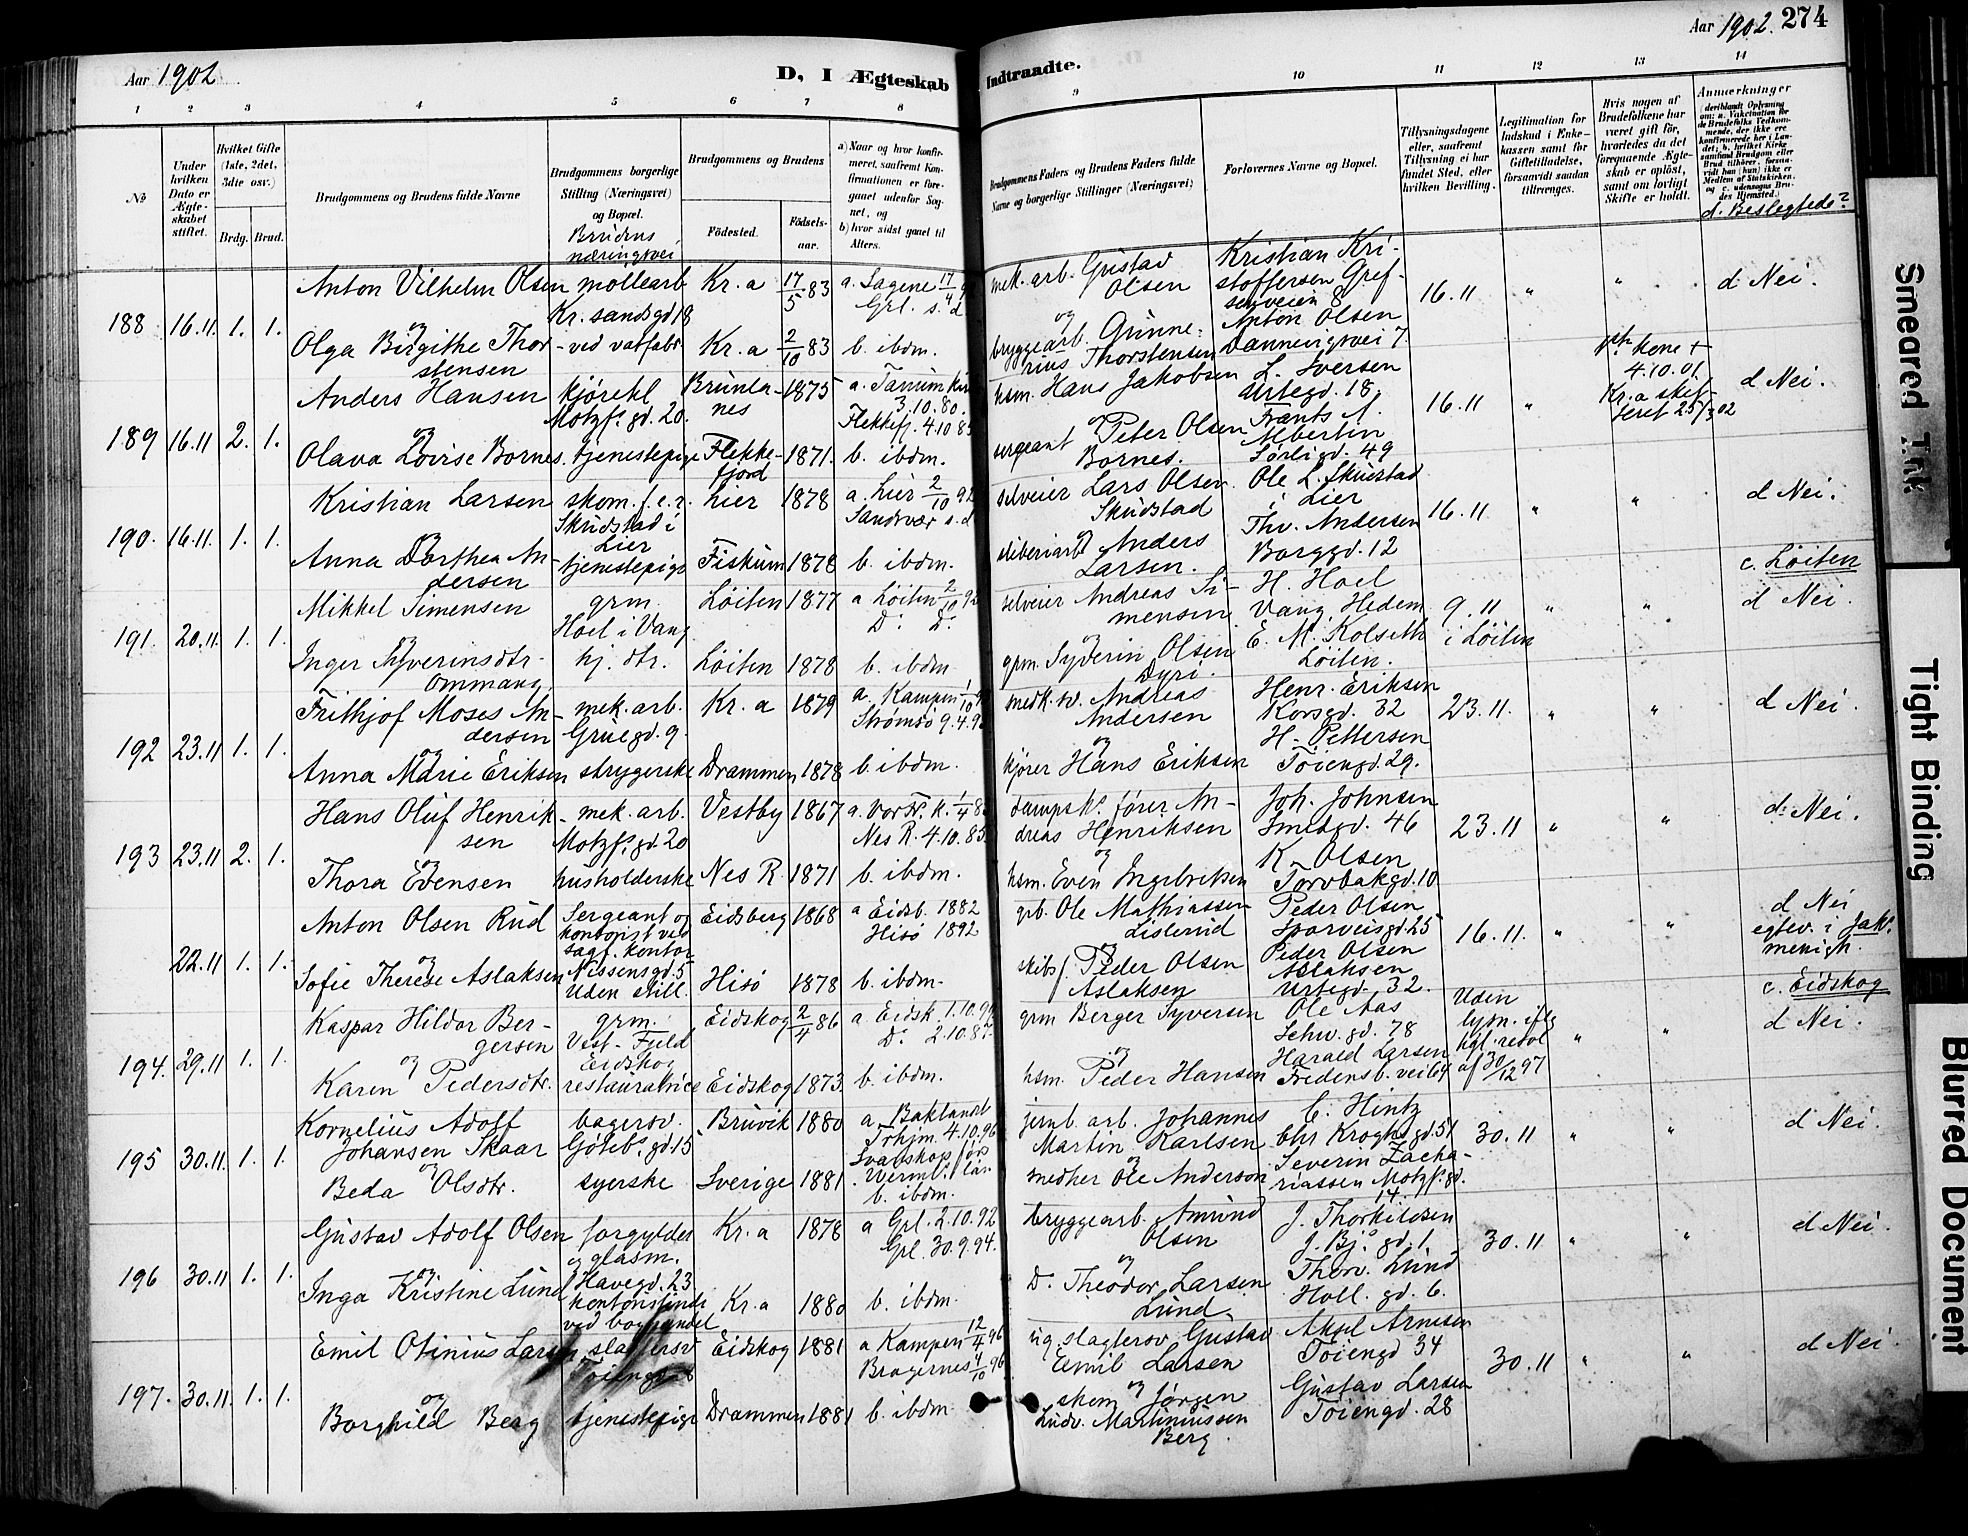 Aar 1902
D, I Ægteskab
Indtraadte.
Aar 1902. 274
1 2 3 4 5 6 7 8
9 10 11 12 13 14
No
Under hvilken Dato er Ægteskabet stiftet.
Hvilket Gifte (1ste, 2det, 3die osv.)
Brdg. Brud.
Brudgommens og Brudens fulde Navne
Brudgommens borgerlige Stilling (Næringsvei) og Bopæl.
Brudens næringsvei
Brudgommens og Brudens
Fødested.
Fødselsaar.
a) Naar og hvor konfirmeret, saafremt Konfirmationen er foregaaet udenfor Sognet, og
b) hvor sidst gaaet til Alters.
Brudgommens Faders og Brudens Faders fulde Navne og borgerlige Stillinger (Næringsvei)
Forlovernes Navne og Bopæl.
Tillysningsdagene eller, saafremt Tillysning ei har fundet Sted, efter hvilken Bevilling.
Legitimation for Indskud i Enkekassen samt for Giftetilladelse, forsaavidt saadan tiltrænges.
Hvis nogen af Brudefolkene har været gift før, hvorledes da det foregaaende Ægteskab er opløst, samt om lovligt Skifte er holdt.
Anmærkninger
(deriblandt Oplysning om: a. Vaccination for de Brudefolks Vedkommende, der ikke ere konfirmerede her i Landet; b. hvilket Kirkesamfund Brudgom eller Brud tilhører, forsaavidt han (hun) ikke er Medlem af Statskirken, og c. udensogns Brudes Hjemsted.)
d. Beslegtede?
188 16.11. 1. 1.
Anton Vilhelm Olsen møllearb Kr.a 17/5 83 a. Sagene
Kr.sandsgd 18 Grl. s.d
og
Olga Birgithe Thorstensen - ved vatfabr. Kr.a 2/10 83 b. ibdm.
mek. arb. Gustav Olsen Kristian Kristoffersen Grefsenveien 8 16.11 " " d. Nei.
og
bryggearb. Gunnerius Thorstensen Anton Olsen Dannevigsvei 7.
189 16.11 2. 1.
Anders Hansen kjørekl Brunlanes 1875 a. Tanum
Motzf.s gd. 20. 3.10.80.
Flekkefj. 4.10
og
Olava Lovise Bornes. tjenestepige Flekkefjord 1871. b. ibdm.
hsm. Hans Jakobsen L. Iversen Urtegd. 18. 16.11 " kone + 4.10.01 Kr.a skifteret 25/3 02 d Nei.
og
sergeant Peter Olsen Bornes. Frants A. Albertin Sørligd. 49
190. 16.11. 1. 1.
Kristian Larsen skom. f.e.r. Lier 1878 a. Lier 2/10
Skudstad i Lier Sandsvær s.d
og
Anna Dorthea Andersen tjenestepige Fiskum 1878 b. ibdm.
selveier Lars Olsen Skudstad Ole L. Skudstad i Lier 16.11 " " d Nei.
og
Anders Larsen. Thv. Andersen Borggd. 12
191. 20.11 1. 1.
Mikkel Simensen grm. Løiten 1877 a Løiten 2/10
Hoel i Vang D: D:
og
Inger Syverinsdtr. Ommang hj. dtr. Løiten 1878 b. ibdm
selveier Andreas Simensen H. Hoel Vang Hedem 9.11 i Løiten " " c. Løiten
d Nei.
og
grm. Syverin Olsen Dyri. E. M. Kolseth Løiten.
192 23.11 1. 1.
Frithjof Moses Andersen mek. arb. Kr.a 1879 a. Kampen
Gruegd. 9. Strømsø 9.4.
og
Anna Marie Eriksen strygerske Drammen 1878 b. ibdm.
Andreas Andersen Henr. Eriksen Korsgd. 32 23.11. " " d Nei.
og
kjører Hans Eriksen H. Pettersen Tøiengd. 29.
193 23.11 2. 1.
Hans Oluf Henriksen mek. arb. Vestby 1867 a. Vor Fr. K. 1/4
Motzf.s gd. 20 Nes R. 4.10.85.
og
Thora Evensen husholderske Nes R 1871 b. ibdm.
dampsk.s fører Andreas Henriksen Joh. Johnsen Smedgd. 46 23.11 " " d. Nei.
og
hsm. Even Ingebriksen K. Olsen Torvbakgd. 10
22.11 1. 1.
Anton Olsen Rud Sergeant og kontorist ved sagf. kontor Eidsberg 1868 a Eidsb. 1882
Nissensgd. 5 Hisø 1892
og
Sofie Therese Aslaksen Uden still. Hisø 1878 b. ibdm.
grb. Ole Mathiassen Lislerud Peder Olsen Sporveisgd. 25 16.11. " " d Nei
egtev. i Jak.s menigh.
og
skibsf. Peder Olsen Aslaksen Peder Olsen Aslaksen Urtegd. 32.
194. 29.11 1. 1.
Kaspar Hildor Bergersen grm. Eidskog 2/4 86 a. Eidsk. 1.10.
Vest-Fjeld Eidskog D: 2.10.87.
og
Karen Pedersdtr. restauratrice Eidskog 1873 b. ibdm.
grm Berger Syversen Ole Aas Schw. gd. 78 Uden lysn. iflg kgl. resol af 30/12 97 " " c. Eidskog
d Nei.
og
hsm. Peder Hansen Harald Larsen Fredensb. vei 64
195 30.11. 1. 1.
Kornelius Adolf Johansen Skaar bagersv. Bruvik 1880 a. Baklandet
Gøteb.s gd. 15 Trhjm. 4.10.96
og
Beda Olsdtr. syerske Sverige 1881
b. ibdm.
jernb. arb. Johannes Martin Karlsen C. Hintz Chr Kroghs gd. 51 30.11 " " d Nei.
og
Ole Anderson Severin Zachariassen Motzf.s gd. 14.
196 30.11 1. 1.
Gustav Adolf Olsen forgylder og glasm. Kr.a 1878 a Grl. 2.10.92
Havegd. 23 Grl. 30.9.94.
og
Inga Kristine Lund ved boghandel Kr.a 1880 b. ibdm.
bryggearb. Amund Olsen J. Thorkildsen J. Bj.s gd. 1 30.11 " " d Nei.
og
D. Theodor Larsen Lund Thorv. Lund Holl. gd. 6.
197. 30.11. 1. 1.
Emil Otinius Larsen slagtersv Eidskog 1881 a Kampen 12/4 96
Bragernes 4/10 96
og
Borghild Berg tjenestepige Drammen 1881 b. ibdm
slagtersv. Gustav Emil Larsen Aksel Arnesen Tøiengd 34 30.11 " " d Nei.
og
skom Jørgen Ludv. Martiniussen Berg. Gustav Larsen Tøiengd. 28
Smeared Ink
Tight Binding
Blurred Document